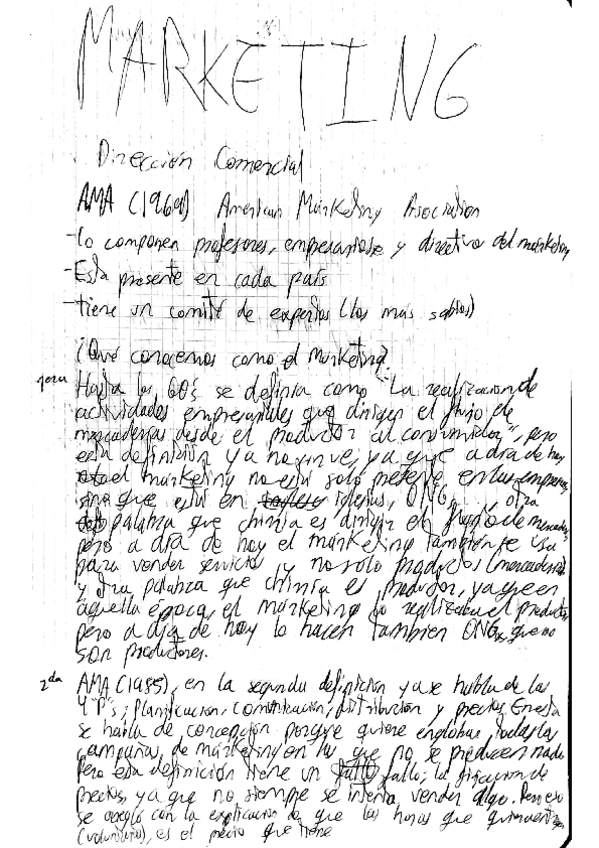 MARKETING
Dirección Comercial
AMA (1960) American Marketing Association
-Lo componen profesores, empresarios y directivo del marketing
-Esta presente en cada país
-tiene un comité de expertos (los más sabios)
¿Qué conocemos como el Marketing?
1era Hasta los 60's se definía como "La realización de
actividades empresariales que dirigen el flujo de
mercaderías desde el productor al consumidor", pero
esta definición ya no sirve, ya que a día de hoy
el marketing no está solo presente en las empresas,
sino que está en iglesias, ONG..., otra
palabra que chirría es dirigir el flujo de mercaderías
pero a día de hoy el marketing también se usa
para vender servicios y no solo productos (mercaderías)
y otra palabra que chirría es productor, ya que en
aquella época, el marketing lo realizaba el productor
pero a día de hoy lo hacen también ONGs, que no
son productores.
2da AMA (1985), en la segunda definición ya se habla de las
4 "P"s, planificación, comunicación, distribución y precios. En esta
se habla de concepción porque quiere englobar todas las
campañas de marketing en las que no se producen nada
Pero esta definición tiene un fallo, la fijación de
precios, ya que no siempre se intenta vender algo. Pero eso
se arregló con la explicación de que las horas que
(voluntario), es el precio que tiene